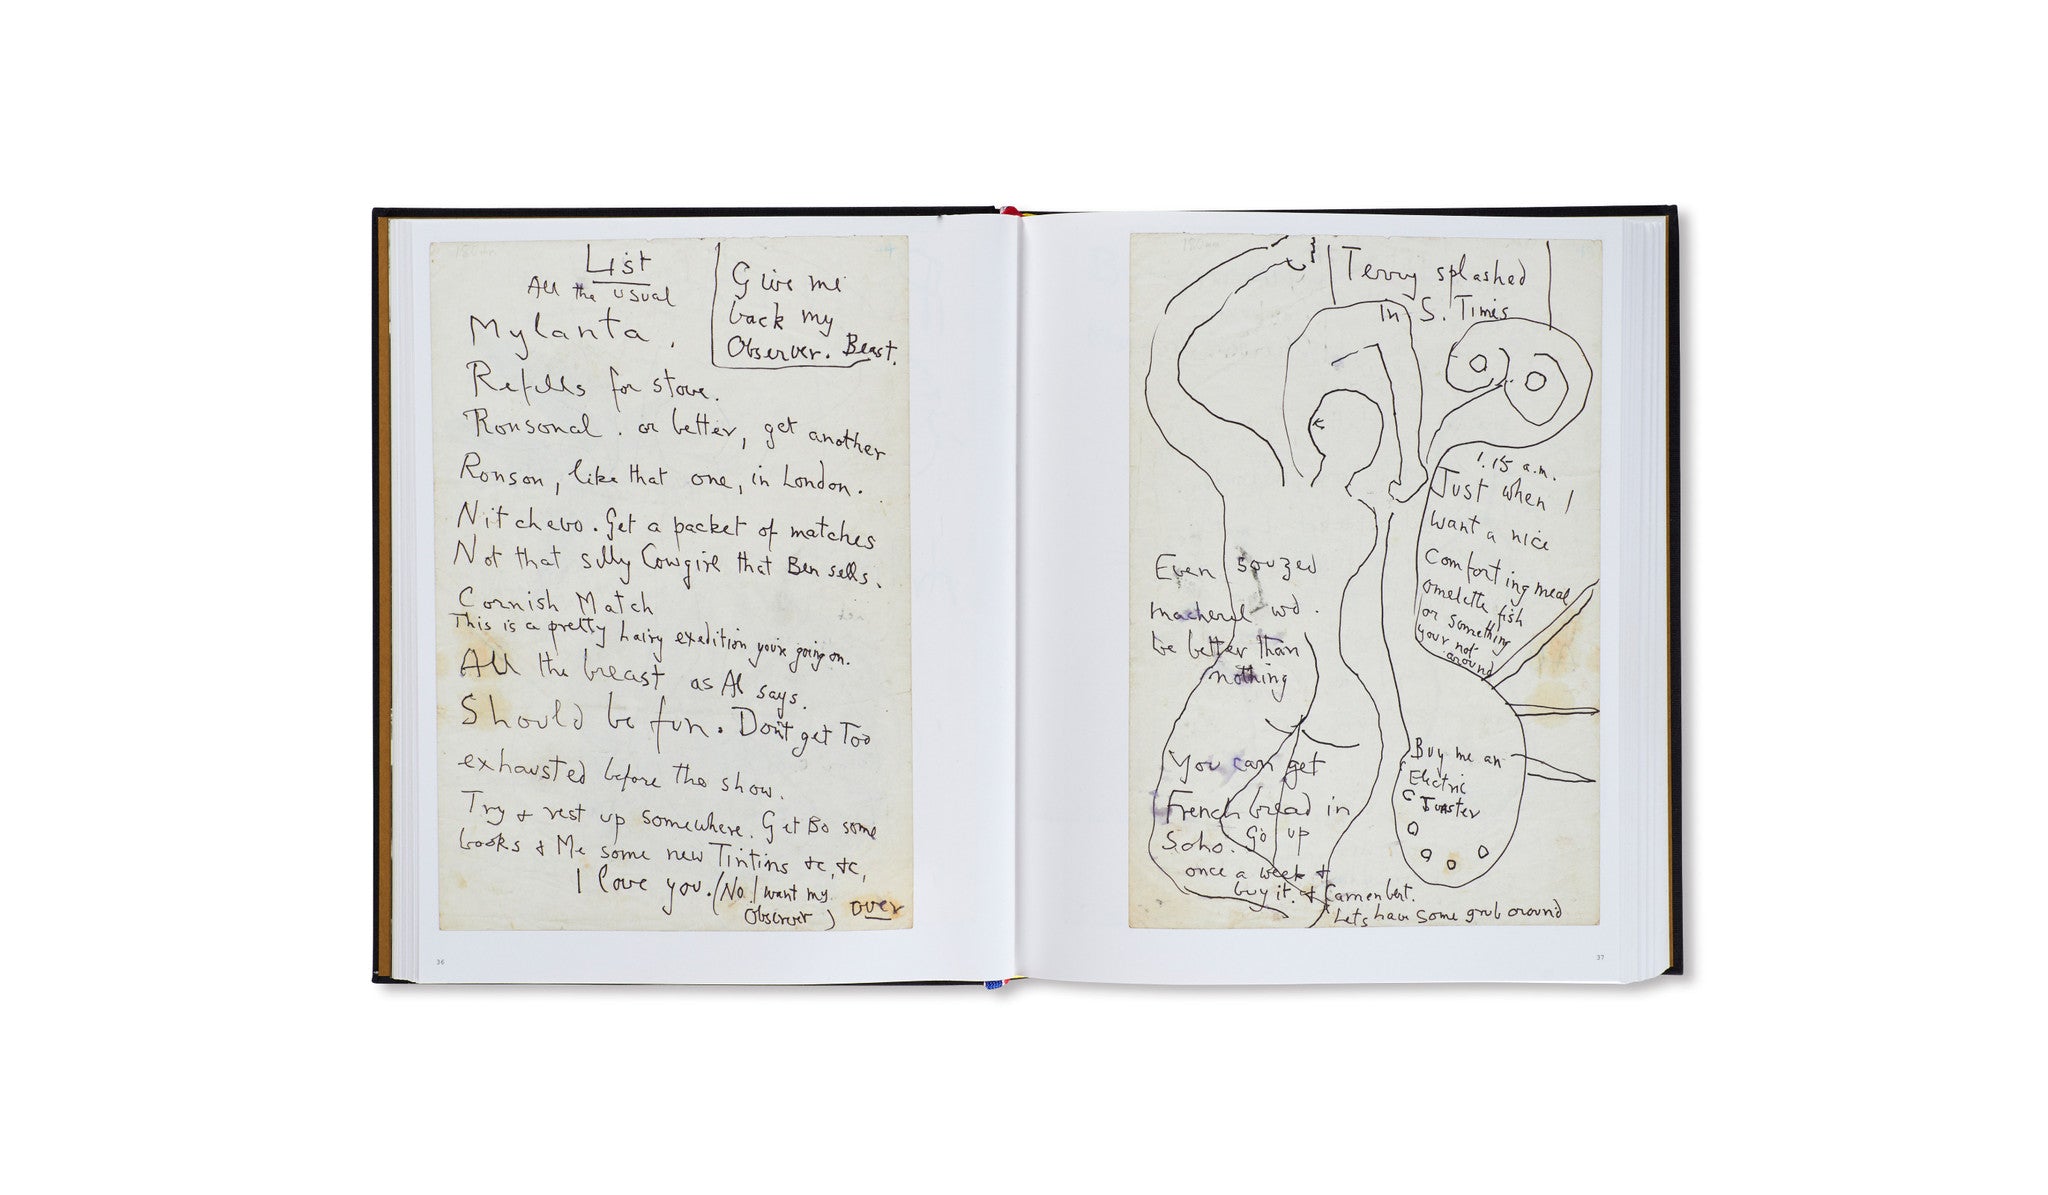 List
All the usual
Give me
back my
Observer. Beast.
Mylanta.
Refills for stove.
Ronsonal. or better, get another
Ronson, like that one, in London.
Nitchevo. Get a packet of matches
Not that silly Cowgirl that Ben sells.
Cornish Match
This is a pretty hairy exedition you're going on.
All the breast as Al says.
Should be fun. Don't get Too
exhausted before the show.
Try & rest up somewhere. Get Bo some
books & Me some new Tintins &c, &c,
I love you. (No. I want my
Observer)
over
36
Terry splashed
in S. Times
1.15 a.m.
Just when I
want a nice
comforting meal
omelette fish
or something
your not
around
Even souzed
macherel wd.
be better than
nothing
Buy me an
Electric
Toaster
You can get
French bread in
Soho. Go up
once a week &
buy it. & Camenbert.
Lets have some grub around
37